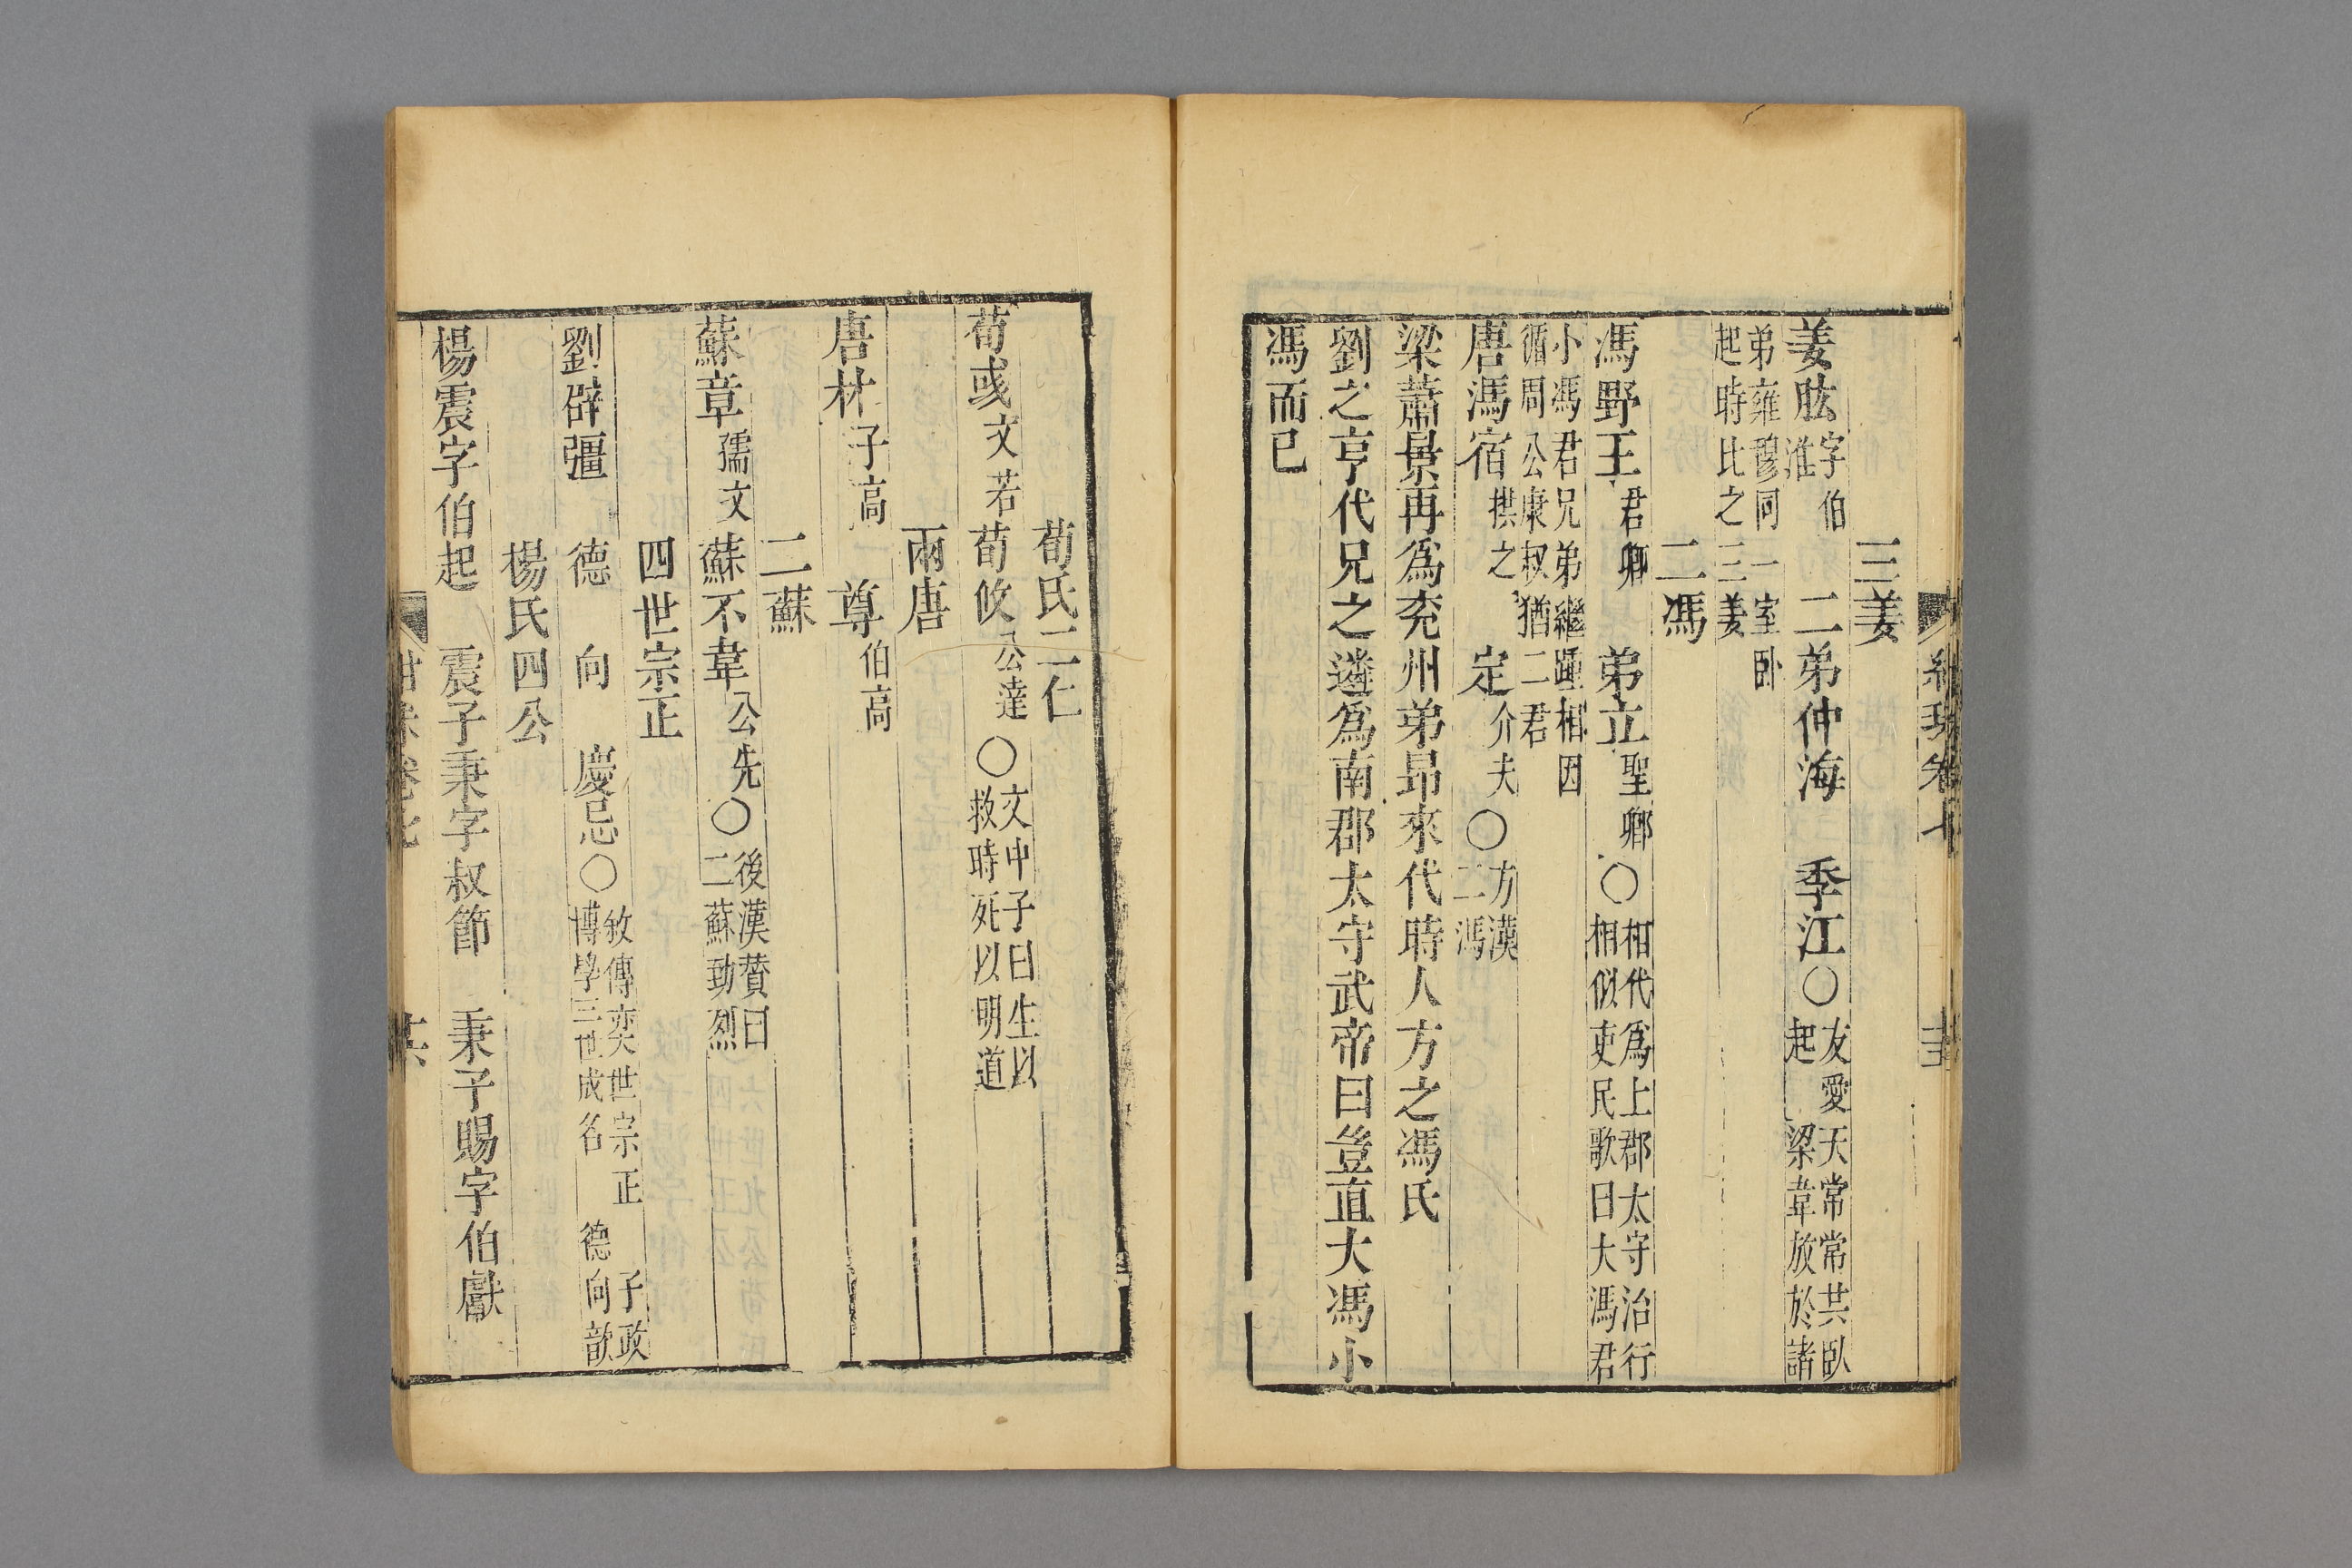 三姜
姜肱字伯淮 二弟仲海 季江○友愛天常常共臥起 梁韋放於諸
弟雍穆同一室卧起時比之三姜
二馮
馮野王君卿 弟立聖卿○相代爲上郡太守治行相似吏民歌曰大馮君
小馮君兄弟繼踵相因循周公康叔猶二君
唐馮宿拱之 定介夫○方漢二馮
梁蕭景再爲兖州弟昂來代時人方之馮氏
劉之亨代兄之遴爲南郡太守武帝曰豈直大馮小
馮而已
荀氏二仁
荀彧文若 荀攸公達○文中子曰生以救時死以明道
兩唐
唐林子高 尊伯高
二蘇
蘇章孺文 蘇不韋公先○後漢賛曰二蘇勁烈
四世宗正
劉辟彊 德 向 慶忌○敘傳奕世宗正 子政博學三世成名 德向歆
楊氏四公
楊震字伯起 震子秉字叔節 秉子賜字伯獻